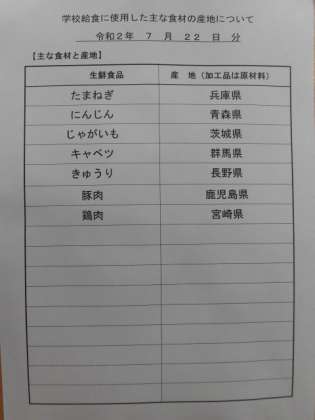 学校給食に使用した主な食材の産地について
令和2年 7 月 22 日 分
【主な食材と産地】
生鮮食品 産 地（加工品は原材料）
たまねぎ 兵庫県
にんじん 青森県
じゃがいも 茨城県
キャベツ 群馬県
きゅうり 長野県
豚肉 鹿児島県
鶏肉 宮崎県